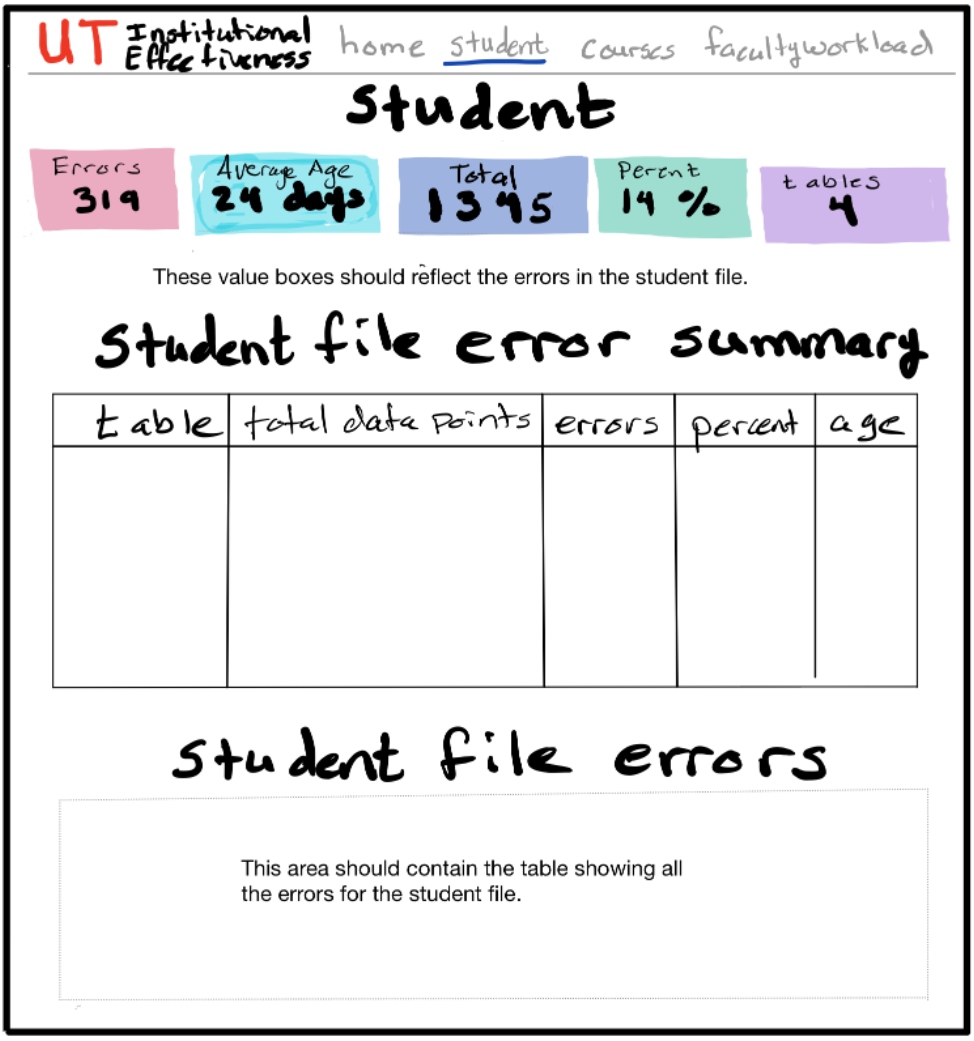 UT Institutional Effectiveness home student courses facultyworkload
Student
Errors Average Age Total Percnt tables
319 24 days 1345 14 % 4
These value boxes should reflect the errors in the student file.
Student file error summary
table total data points errors percent age
Student file errors
This area should contain the table showing all
the errors for the student file.